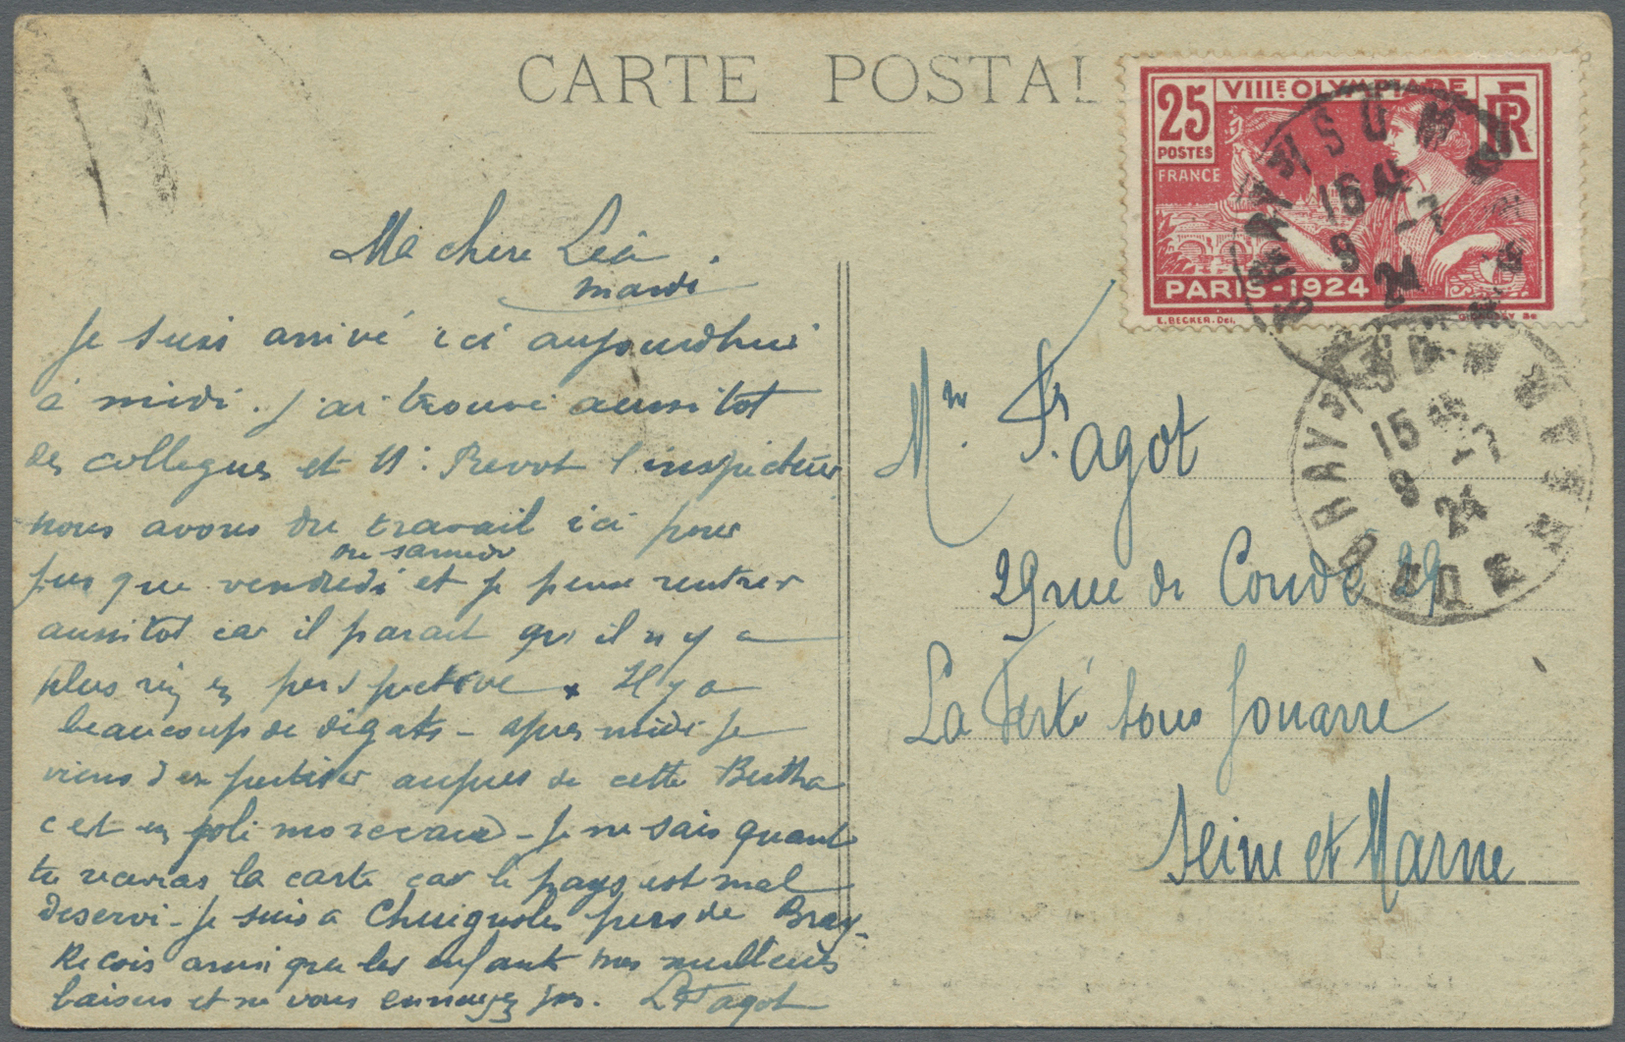 CARTE POSTAL
25
POSTES
FRANCE
VIIIE OLYMPIADE
RF
PARIS-1924
E. BECKER. Del.
BRAY S SOMME
16 4
9 -7
24
BRAY S SOMME
15
9 -7
24
Ma chere Léa
mardi
Je suis arrivé ici aujourdhui
à midi. J ai trouvé aussitot
des collegues et M. Prevot l inspecteur
nous avons du travail ici pour
jusque vendredi ou samedi et je pense rentrer
aussitot car il parait qu il n y a
plus rien en perspective. Il y a
beaucoup de degats - apres midi je
viens d en pecher aupres de cette Bertha
c est un joli morceau - Je ne sais quand
tu recevras la carte car le pays est mal
deservi - Je suis a Chuignoles pres de Bray.
Recois ainsi que les enfants mes meilleurs
baisers et ne vous ennuyez pas. L Fagot
Mme Fagot
29 rue de Condé 29
La Ferté sous Jouarre
Seine et Marne